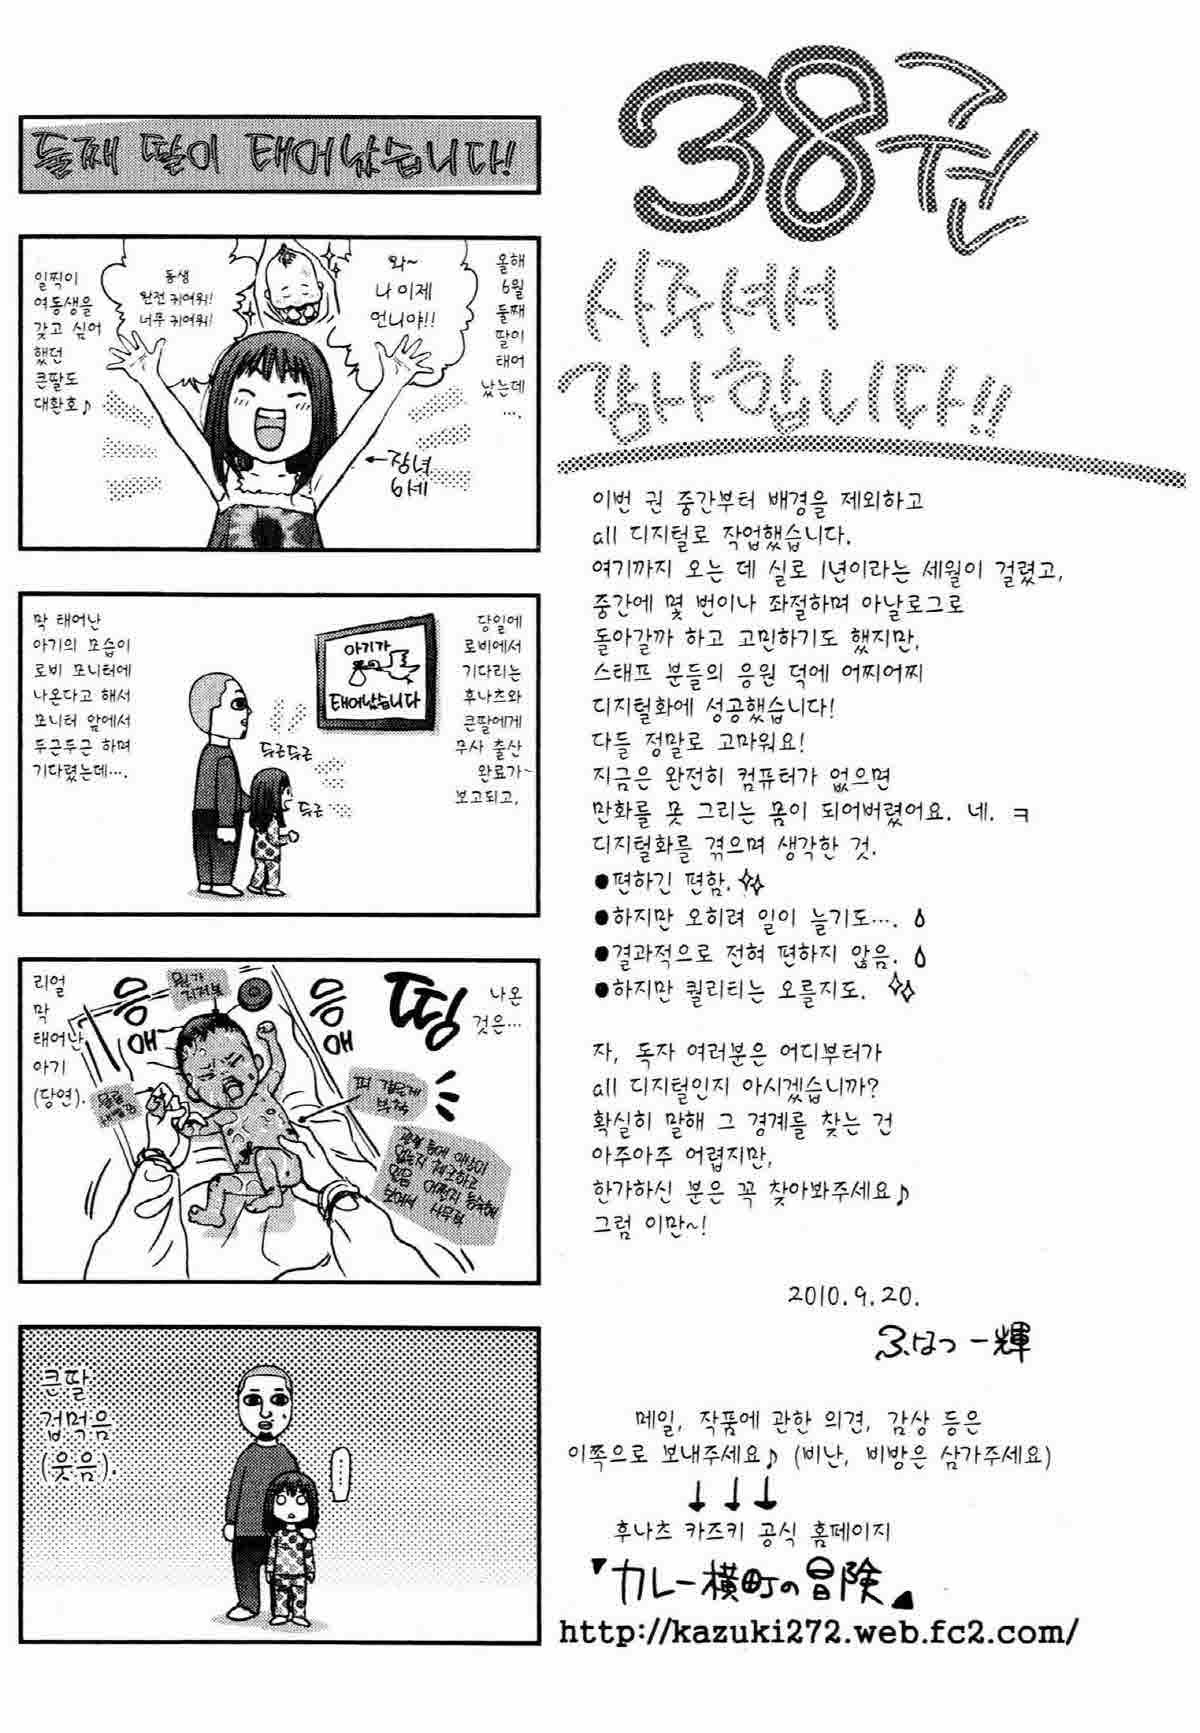 38권
사주셔서
감사합니다!!
이번 권 중간부터 배경을 제외하고
all 디지털로 작업했습니다.
여기까지 오는 데 실로 1년이라는 세월이 걸렸고,
중간에 몇 번이나 좌절하며 아날로그로
돌아갈까 하고 고민하기도 했지만,
스태프 분들의 응원 덕에 어찌어찌
디지털화에 성공했습니다!
다들 정말로 고마워요!
지금은 완전히 컴퓨터가 없으면
만화를 못 그리는 몸이 되어버렸어요. 네. ㅋ
디지털화를 겪으며 생각한 것.
●편하긴 편함.
●하지만 오히려 일이 늘기도….
●결과적으로 전혀 편하지 않음.
●하지만 퀄리티는 오를지도.
자, 독자 여러분은 어디부터가
all 디지털인지 아시겠습니까?
확실히 말해 그 경계를 찾는 건
아주아주 어렵지만,
한가하신 분은 꼭 찾아봐주세요♪
그럼 이만~!
2010.9.20.
ふなつ一輝
메일, 작품에 관한 의견, 감상 등은
이쪽으로 보내주세요♪ (비난, 비방은 삼가주세요)
↓ ↓ ↓
후나츠 카즈키 공식 홈페이지
「カレー横町の冒険」
http://kazuki272.web.fc2.com/
둘째 딸이 태어났습니다!
올해
6월
둘째
딸이
태어
났는데
….
와~
나 이제
언니야!!
동생
완전 귀여워!
너무 귀여워!
일찍이
여동생을
갖고 싶어
했던
큰딸도
대환호♪
←장녀
6세
당일에
로비에서
기다리는
후나츠와
큰딸에게
무사 출산
완료가~
보고되고,
아기가
태어났습니다
두근두근
두근
막 태어난
아기의 모습이
로비 모니터에
나온다고 해서
모니터 앞에서
두근두근 하며
기다렸는데….
나온
것은…
띵
응애
응애
뭔가
지저분
피 같은게
부착
리얼
막
태어난
아기
(당연).
큰딸
겁먹음
(웃음).
……